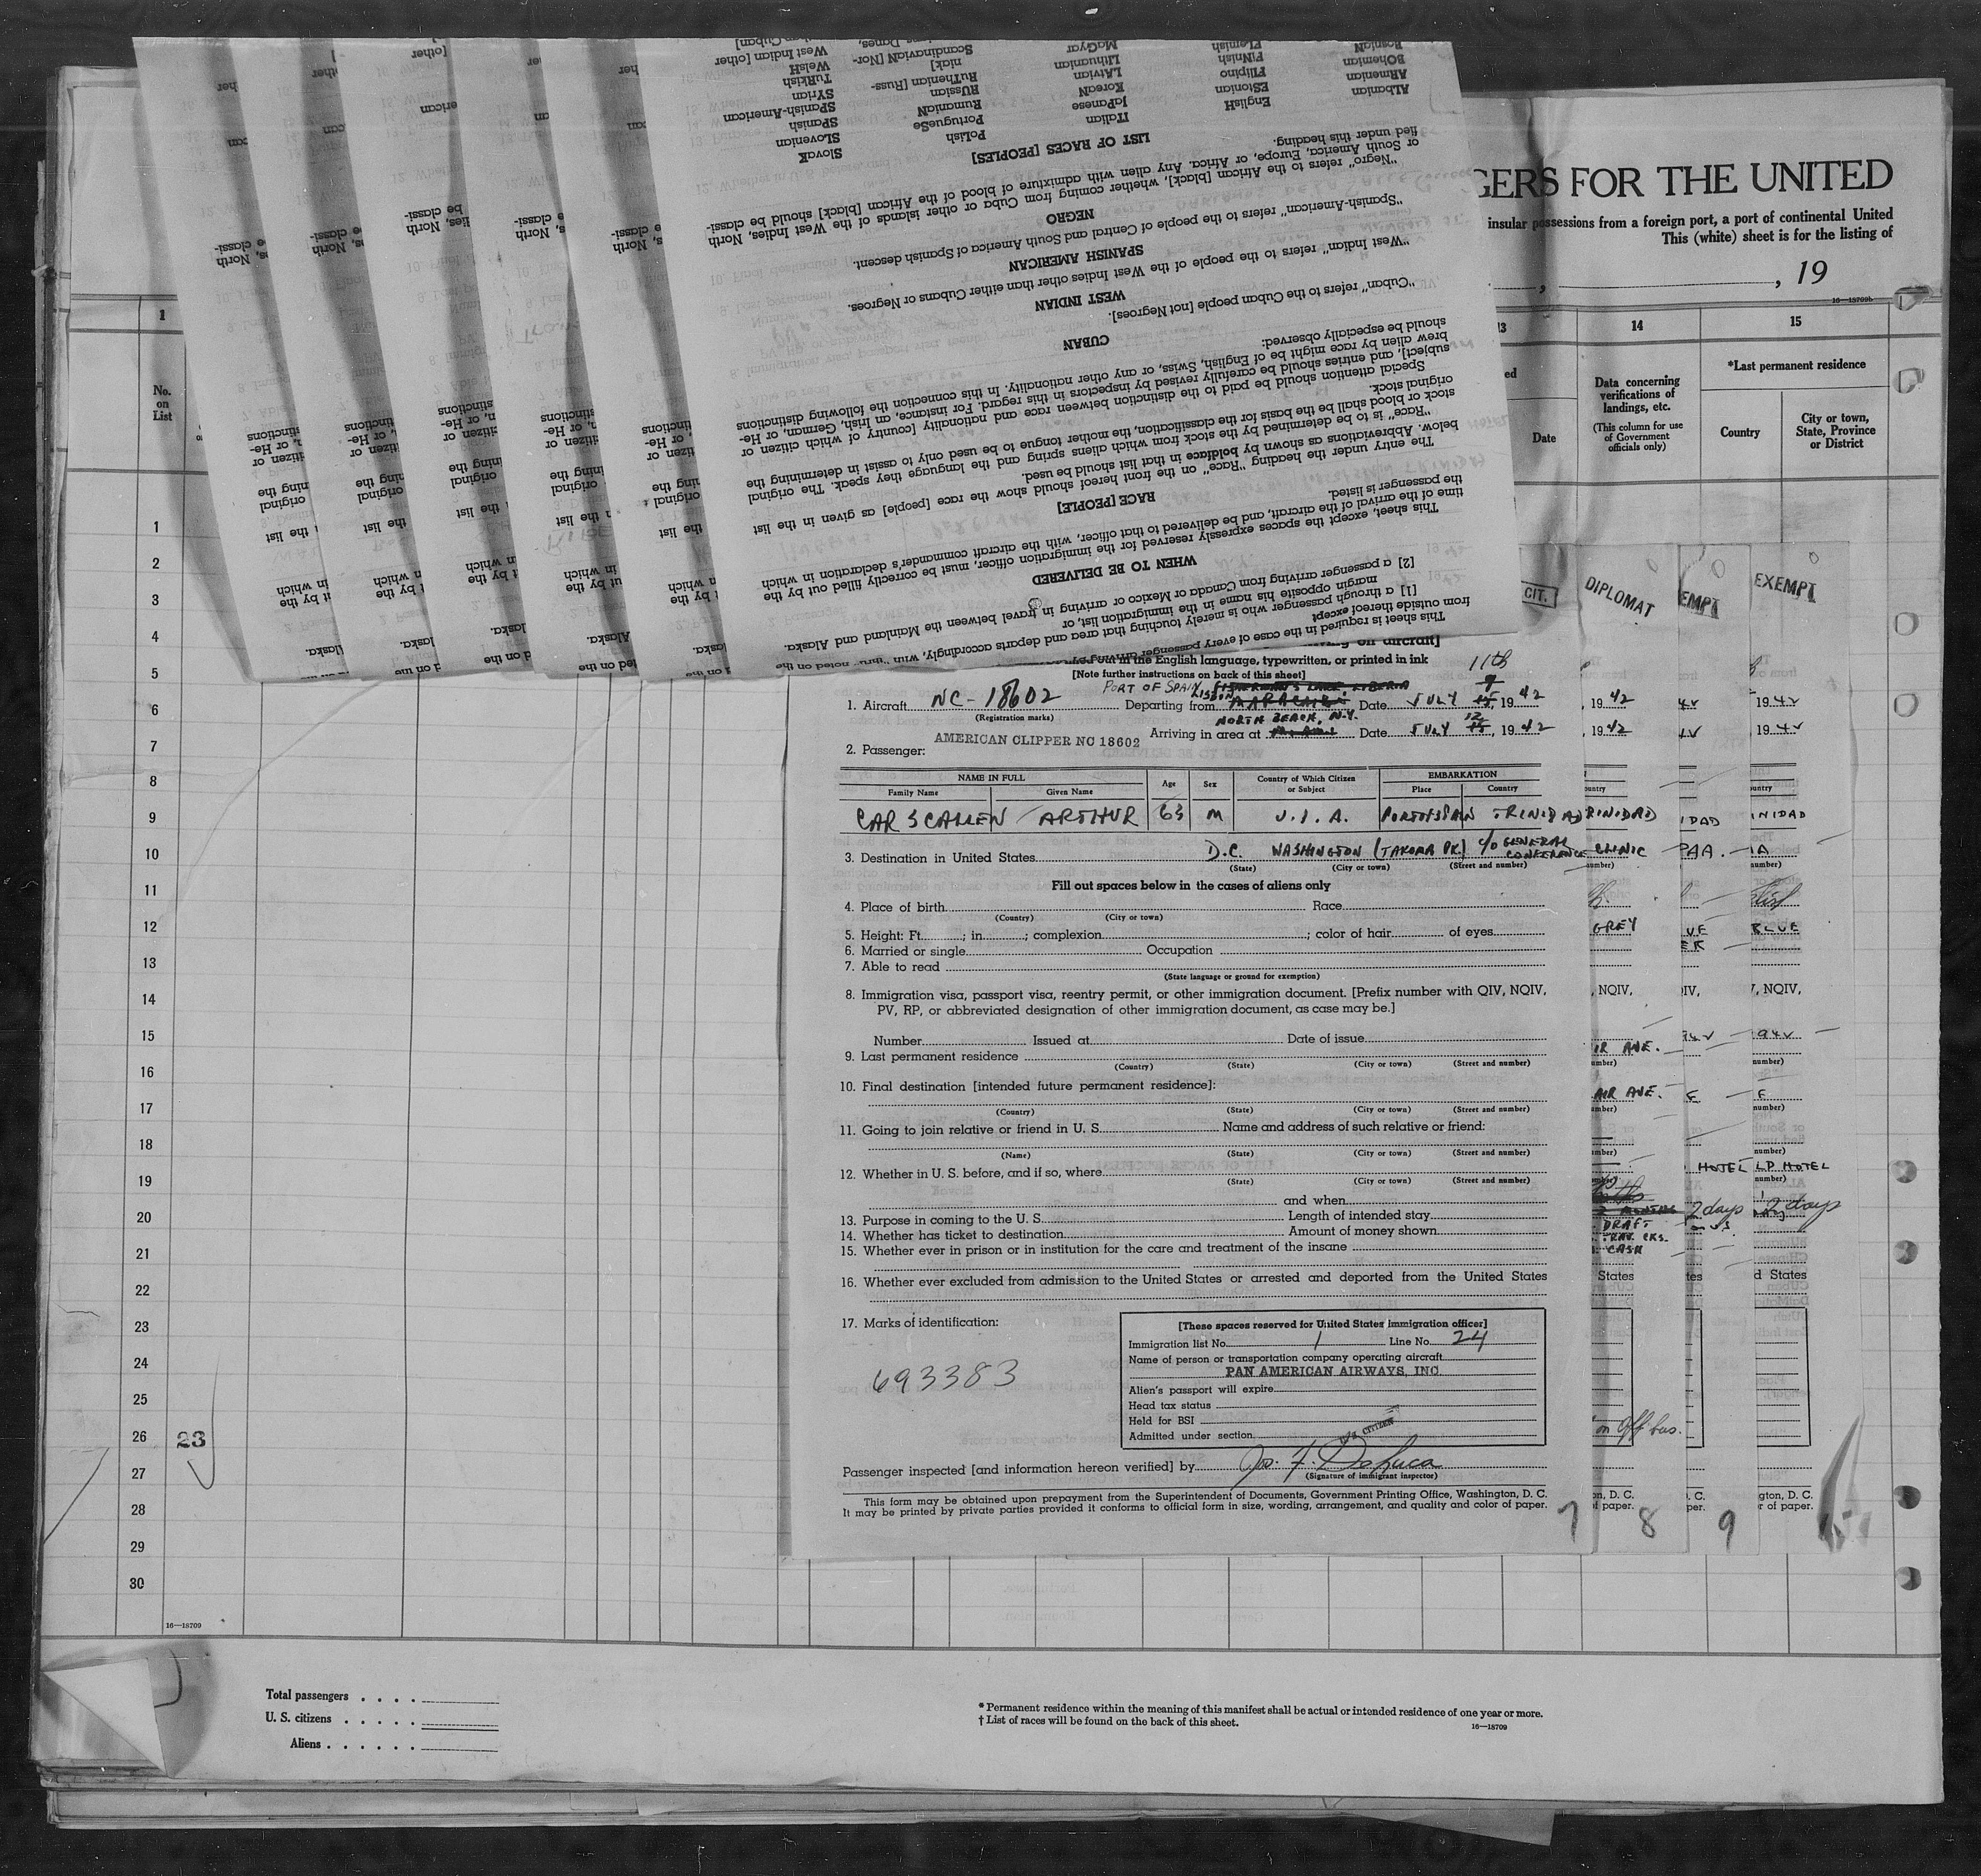 GERS FOR THE UNITED
insular possessions from a foreign port, a port of continental United
This (white) sheet is for the listing of
, 19
16—18709b
1
13
14
15
No.
on
List
Date
Data concerning
verifications of
landings, etc.
(This column for use
of Government
officials only)
*Last permanent residence
Country
City or town,
State, Province
or District
This sheet is required in the case of every passenger
from outside thereof except
[1] a through passenger who is merely touching that area and departs accordingly, with "thru" noted on the
margin opposite his name in the immigration list, or
[2] a passenger arriving from Canada or Mexico or arriving in travel between the Mainland and Alaska.
WHEN TO BE DELIVERED
This sheet, except the spaces expressly reserved for the immigration officer, must be correctly filled out by the
time of the arrival of the aircraft, and be delivered to that officer, with the aircraft commander's declaration in which
the passenger is listed.
RACE [PEOPLE]
The entry under the heading "Race" on the front hereof should show the race [people] as given in the list
below. Abbreviations as shown by boldface in that list should be used.
"Race" is to be determined by the stock from which aliens spring and the language they speak. The original
stock or blood shall be the basis for the classification, the mother tongue to be used only to assist in determining the
original stock.
Special attention should be paid to the distinction between race and nationality [country of which citizen or
subject], and entries should be carefully revised by inspectors in this regard. For instance, an Irish, German, or He-
brew alien by race might be of English, Swiss, or any other nationality. In this connection the following distinctions
should be especially observed:
CUBAN
"Cuban" refers to the Cuban people [not Negroes].
WEST INDIAN
"West Indian" refers to the people of the West Indies other than either Cubans or Negroes.
SPANISH AMERICAN
"Spanish-American" refers to the people of Central and South America of Spanish descent.
NEGRO
"Negro" refers to the African [black], whether coming from Cuba or other islands of the West Indies, North
or South America, Europe, or Africa. Any alien with admixture of blood of the African [black] should be classi-
fied under this heading.
LIST OF RACES [PEOPLES]
Albanian EnglisH ITalian PoLish SlovaK
ARmenian EStonian JaPanese PortugueSe SLovenian
BOhemian FIlipino KoreaN RumaniaN SPanish
BosniaN FiNnish LAtvian RUssian SPanish-American
Flemish LIthuanian RuThenian [Russ- SYrian
MaGyar niak] TuRkish
ScandinaviaN [Nor- WelsH
Danes, West Indian [other
Cuban]
CIT.
DIPLOMAT
EMPT
EXEMPT
on aircraft]
in the English language, typewritten, or printed in ink
[Note further instructions on back of this sheet]
11th
1. Aircraft NC-18602 Departing from PORT OF SPAIN LISBON Date JULY 1942
(Registration marks)
AMERICAN CLIPPER NC 18602
Arriving in area at NORTH BEACH, N.Y. Date JULY 12, 1942
2. Passenger:
NAME IN FULL Age Sex Country of Which Citizen or Subject EMBARKATION
Family Name Given Name Place Country
CARSCALLEN ARTHUR 63 M U.S.A. PORTOFSPAIN TRINIDAD
3. Destination in United States D.C. WASHINGTON (TAKOMA PK.) c/o GENERAL CONFERENCE
(State) (City or town) (Street and number)
Fill out spaces below in the cases of aliens only
4. Place of birth Race
(Country) (City or town)
5. Height: Ft. ; in. ; complexion ; color of hair of eyes
6. Married or single Occupation
7. Able to read
(State language or ground for exemption)
8. Immigration visa, passport visa, reentry permit, or other immigration document. [Prefix number with QIV, NQIV,
PV, RP, or abbreviated designation of other immigration document, as case may be.]
Number Issued at Date of issue
9. Last permanent residence
(Country) (State) (City or town) (Street and number)
10. Final destination [intended future permanent residence]:
(Country) (State) (City or town) (Street and number)
11. Going to join relative or friend in U. S. Name and address of such relative or friend:
(Name) (State) (City or town) (Street and number)
12. Whether in U. S. before, and if so, where
(State) (City or town) (Street and number)
and when
13. Purpose in coming to the U. S. Length of intended stay
14. Whether has ticket to destination Amount of money shown
15. Whether ever in prison or in institution for the care and treatment of the insane
16. Whether ever excluded from admission to the United States or arrested and deported from the United States
17. Marks of identification:
693383
[These spaces reserved for United States immigration officer]
Immigration list No. 1 Line No. 24
Name of person or transportation company operating aircraft
PAN AMERICAN AIRWAYS, INC.
Alien's passport will expire
Head tax status
Held for BSI
Admitted under section U.S. CITIZEN
Passenger inspected [and information hereon verified] by Jos. F. DeLuca
(Signature of immigrant inspector)
This form may be obtained upon prepayment from the Superintendent of Documents, Government Printing Office, Washington, D. C.
It may be printed by private parties provided it conforms to official form in size, wording, arrangement, and quality and color of paper.
7
8
9
, 19 42
, 19 42
RINIDAD
CLINIC
PAA.
GREY
BLUE
, NQIV,
AIR AVE.
HOTEL
L.P. HOTEL
2 days
2 days
DRAFT
TRAV. CKS.
CASH
States
d States
on Off bus.
1
2
3
4
5
6
7
8
9
10
11
12
13
14
15
16
17
18
19
20
21
22
23
24
25
26
27
28
29
30
23
16—18709
Total passengers
U. S. citizens
Aliens
* Permanent residence within the meaning of this manifest shall be actual or intended residence of one year or more.
† List of races will be found on the back of this sheet.
16—18709